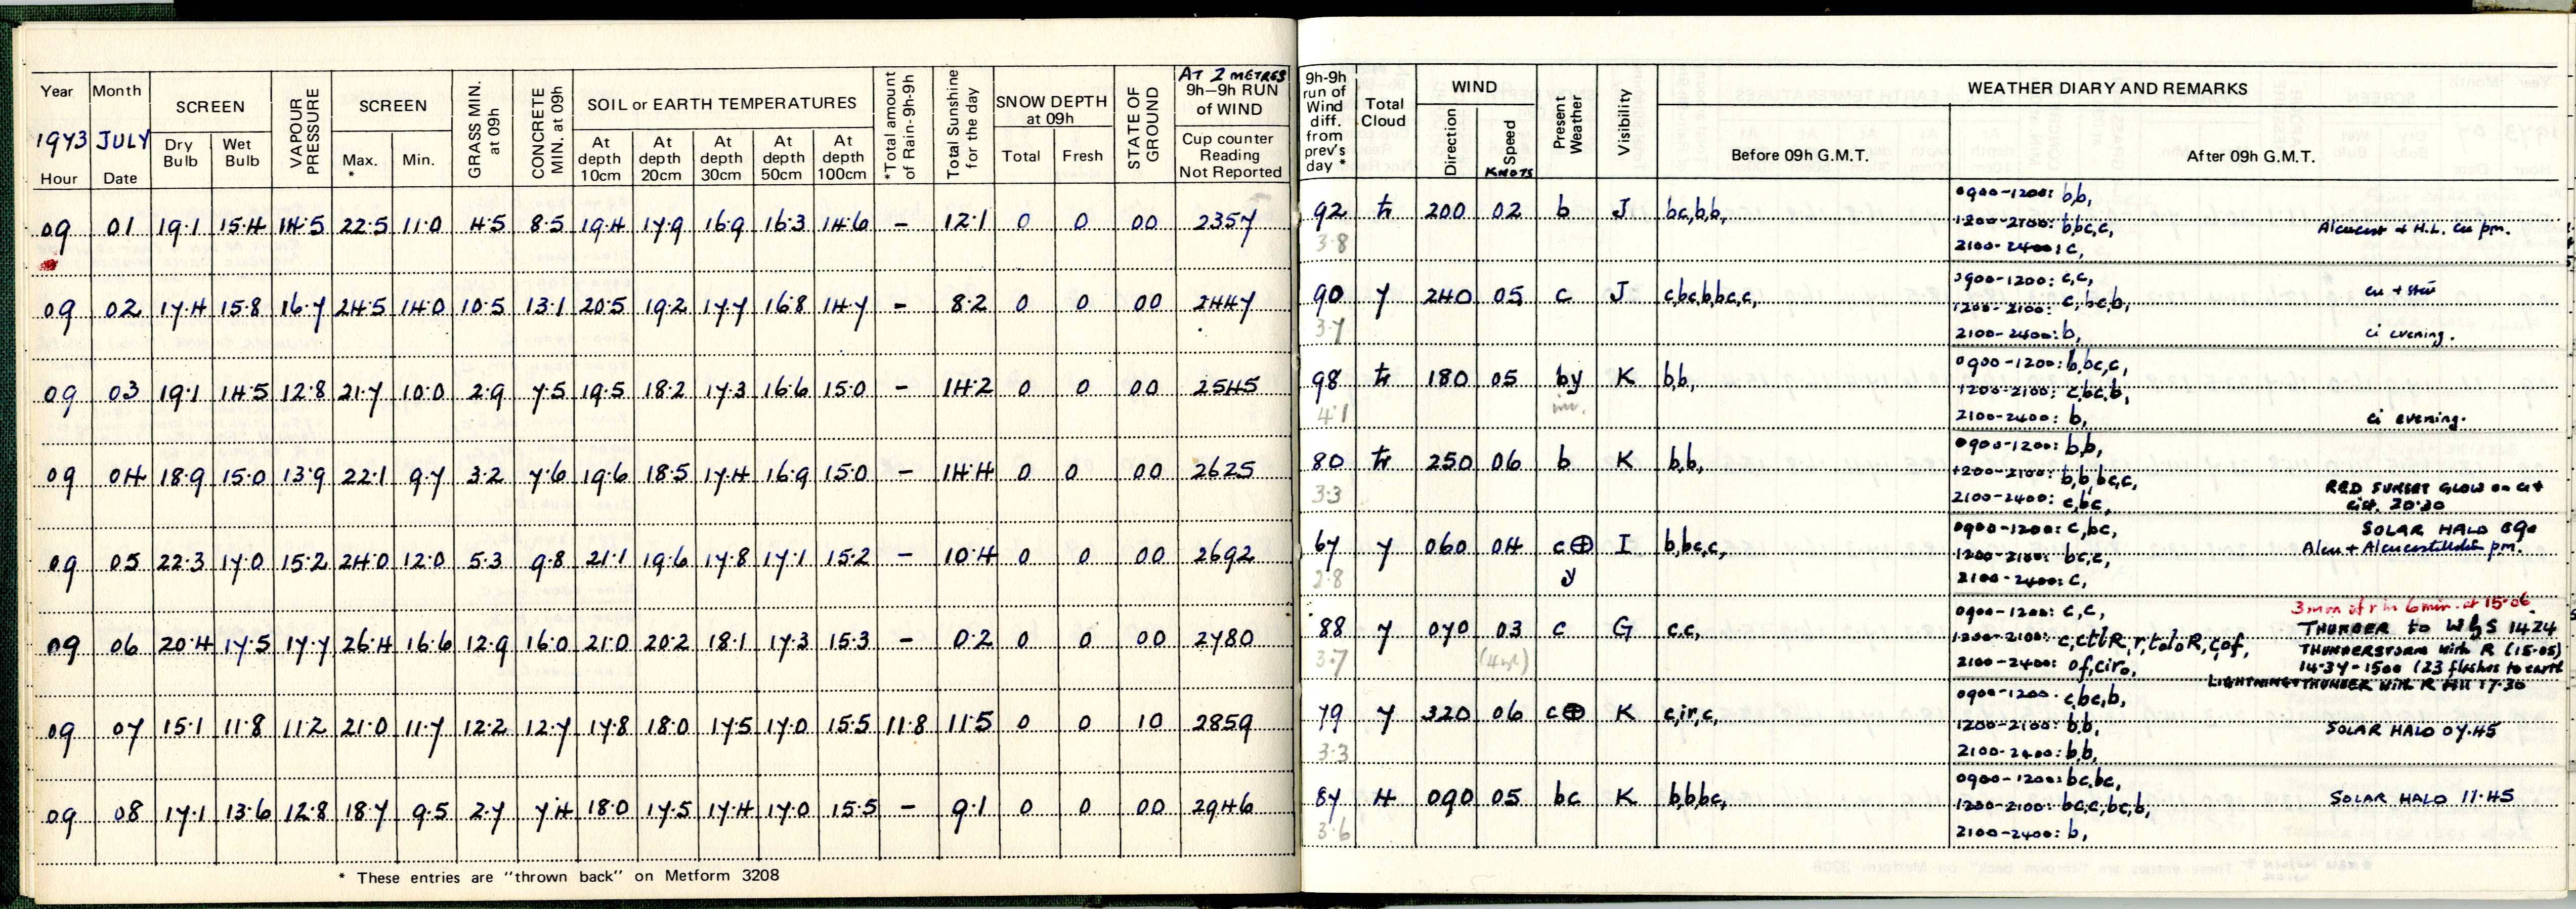 Year Month SCREEN VAPOUR PRESSURE SCREEN GRASS MIN. at 09h CONCRETE MIN. at 09h SOIL or EARTH TEMPERATURES *Total amount of Rain-9h-9h Total Sunshine for the day SNOW DEPTH at 09h STATE OF GROUND AT 2 METRES 9h-9h RUN of WIND
1973 JULY Dry Bulb Wet Bulb Max. * Min. At depth 10cm At depth 20cm At depth 30cm At depth 50cm At depth 100cm Total Fresh Cup counter Reading Not Reported
Hour Date
09 01 19.1 15.4 14.5 22.5 11.0 4.5 8.5 19.4 17.9 16.9 16.3 14.6 - 12.1 0 0 00 2357
09 02 17.4 15.8 16.7 24.5 14.0 10.5 13.1 20.5 19.2 17.7 16.8 14.7 - 8.2 0 0 00 2447
09 03 19.1 14.5 12.8 21.7 10.0 2.9 7.5 19.5 18.2 17.3 16.6 15.0 - 14.2 0 0 00 2545
09 04 18.9 15.0 13.9 22.1 9.7 3.2 7.6 19.6 18.5 17.4 16.9 15.0 - 14.4 0 0 00 2625
09 05 22.3 17.0 15.2 24.0 12.0 5.3 9.8 21.1 19.6 17.8 17.1 15.2 - 10.4 0 0 00 2692
09 06 20.4 17.5 17.7 26.4 16.6 12.9 16.0 21.0 20.2 18.1 17.3 15.3 - 0.2 0 0 00 2780
09 07 15.1 11.8 11.2 21.0 11.7 12.2 12.7 17.8 18.0 17.5 17.0 15.5 11.8 11.5 0 0 10 2859
09 08 17.1 13.6 12.8 18.7 9.5 2.7 7.4 18.0 17.5 17.4 17.0 15.5 - 9.1 0 0 00 2946
* These entries are "thrown back" on Metform 3208
9h-9h run of Wind diff. from prev's day * Total Cloud WIND Present Weather Visibility WEATHER DIARY AND REMARKS
Direction Speed KNOTS Before 09h G.M.T. After 09h G.M.T.
92 200 02 b J bc,b,b, 0900-1200: b,b,
3.8 1200-2100: b,bc,c, & H.L. cu pm.
2100-2400: c,
90 7 240 05 c J c,bc,b,bc,c, 0900-1200: c,c, cu +
3.7 1200-2100: c,bc,b,
2100-2400: b, ci evening.
98 180 05 by K b,b, 0900-1200: b,bc,c,
4.1 1200-2100: c,bc,b,
2100-2400: b, ci evening.
80 250 06 b K b,b, 0900-1200: b,b,
1200-2100: b,b,bc,c, RED SUNSET GLOW on ci +
3.3 2100-2400: c,bc, cist. 20.30
67 7 060 04 c⊕ I b,bc,c, 0900-1200: c,bc, SOLAR HALO 090
y 1200-2100: bc,c, Alcu + pm.
2.8 2100-2400: c,
88 7 070 03 c G c,c, 0900-1200: c,c, 3mm of r in 6 min. at 15.06
THUNDER to W & S 14.24
1200-2100: THUNDERSTORM with R (15.05)
3.7 2100-2400: 14.37-1500 (23 flashes to earth
LIGHTNING + THUNDER with R till 17.30
79 7 320 06 c⊕ K c,ir,c, 0900-1200: c,bc,b,
1200-2100: b,b, SOLAR HALO 07.45
3.3 2100-2400: b,b,
87 4 090 05 bc K b,b,bc, 0900-1200: bc,bc,
1200-2100: bc,c,bc,b, SOLAR HALO 11.45
3.6 2100-2400: b,